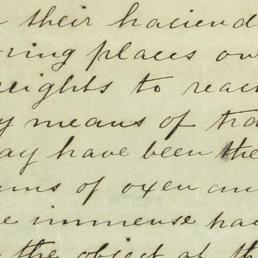 their haciend
ring places ow
eights to reac
y means of tra
ay have been the
ms of oxen an
e immense hav
the object of th